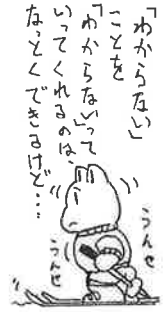 「わからない」
ことを
「わからない」って
いってくれるのは、
なっとくできるけど…
うんせ
うんせ